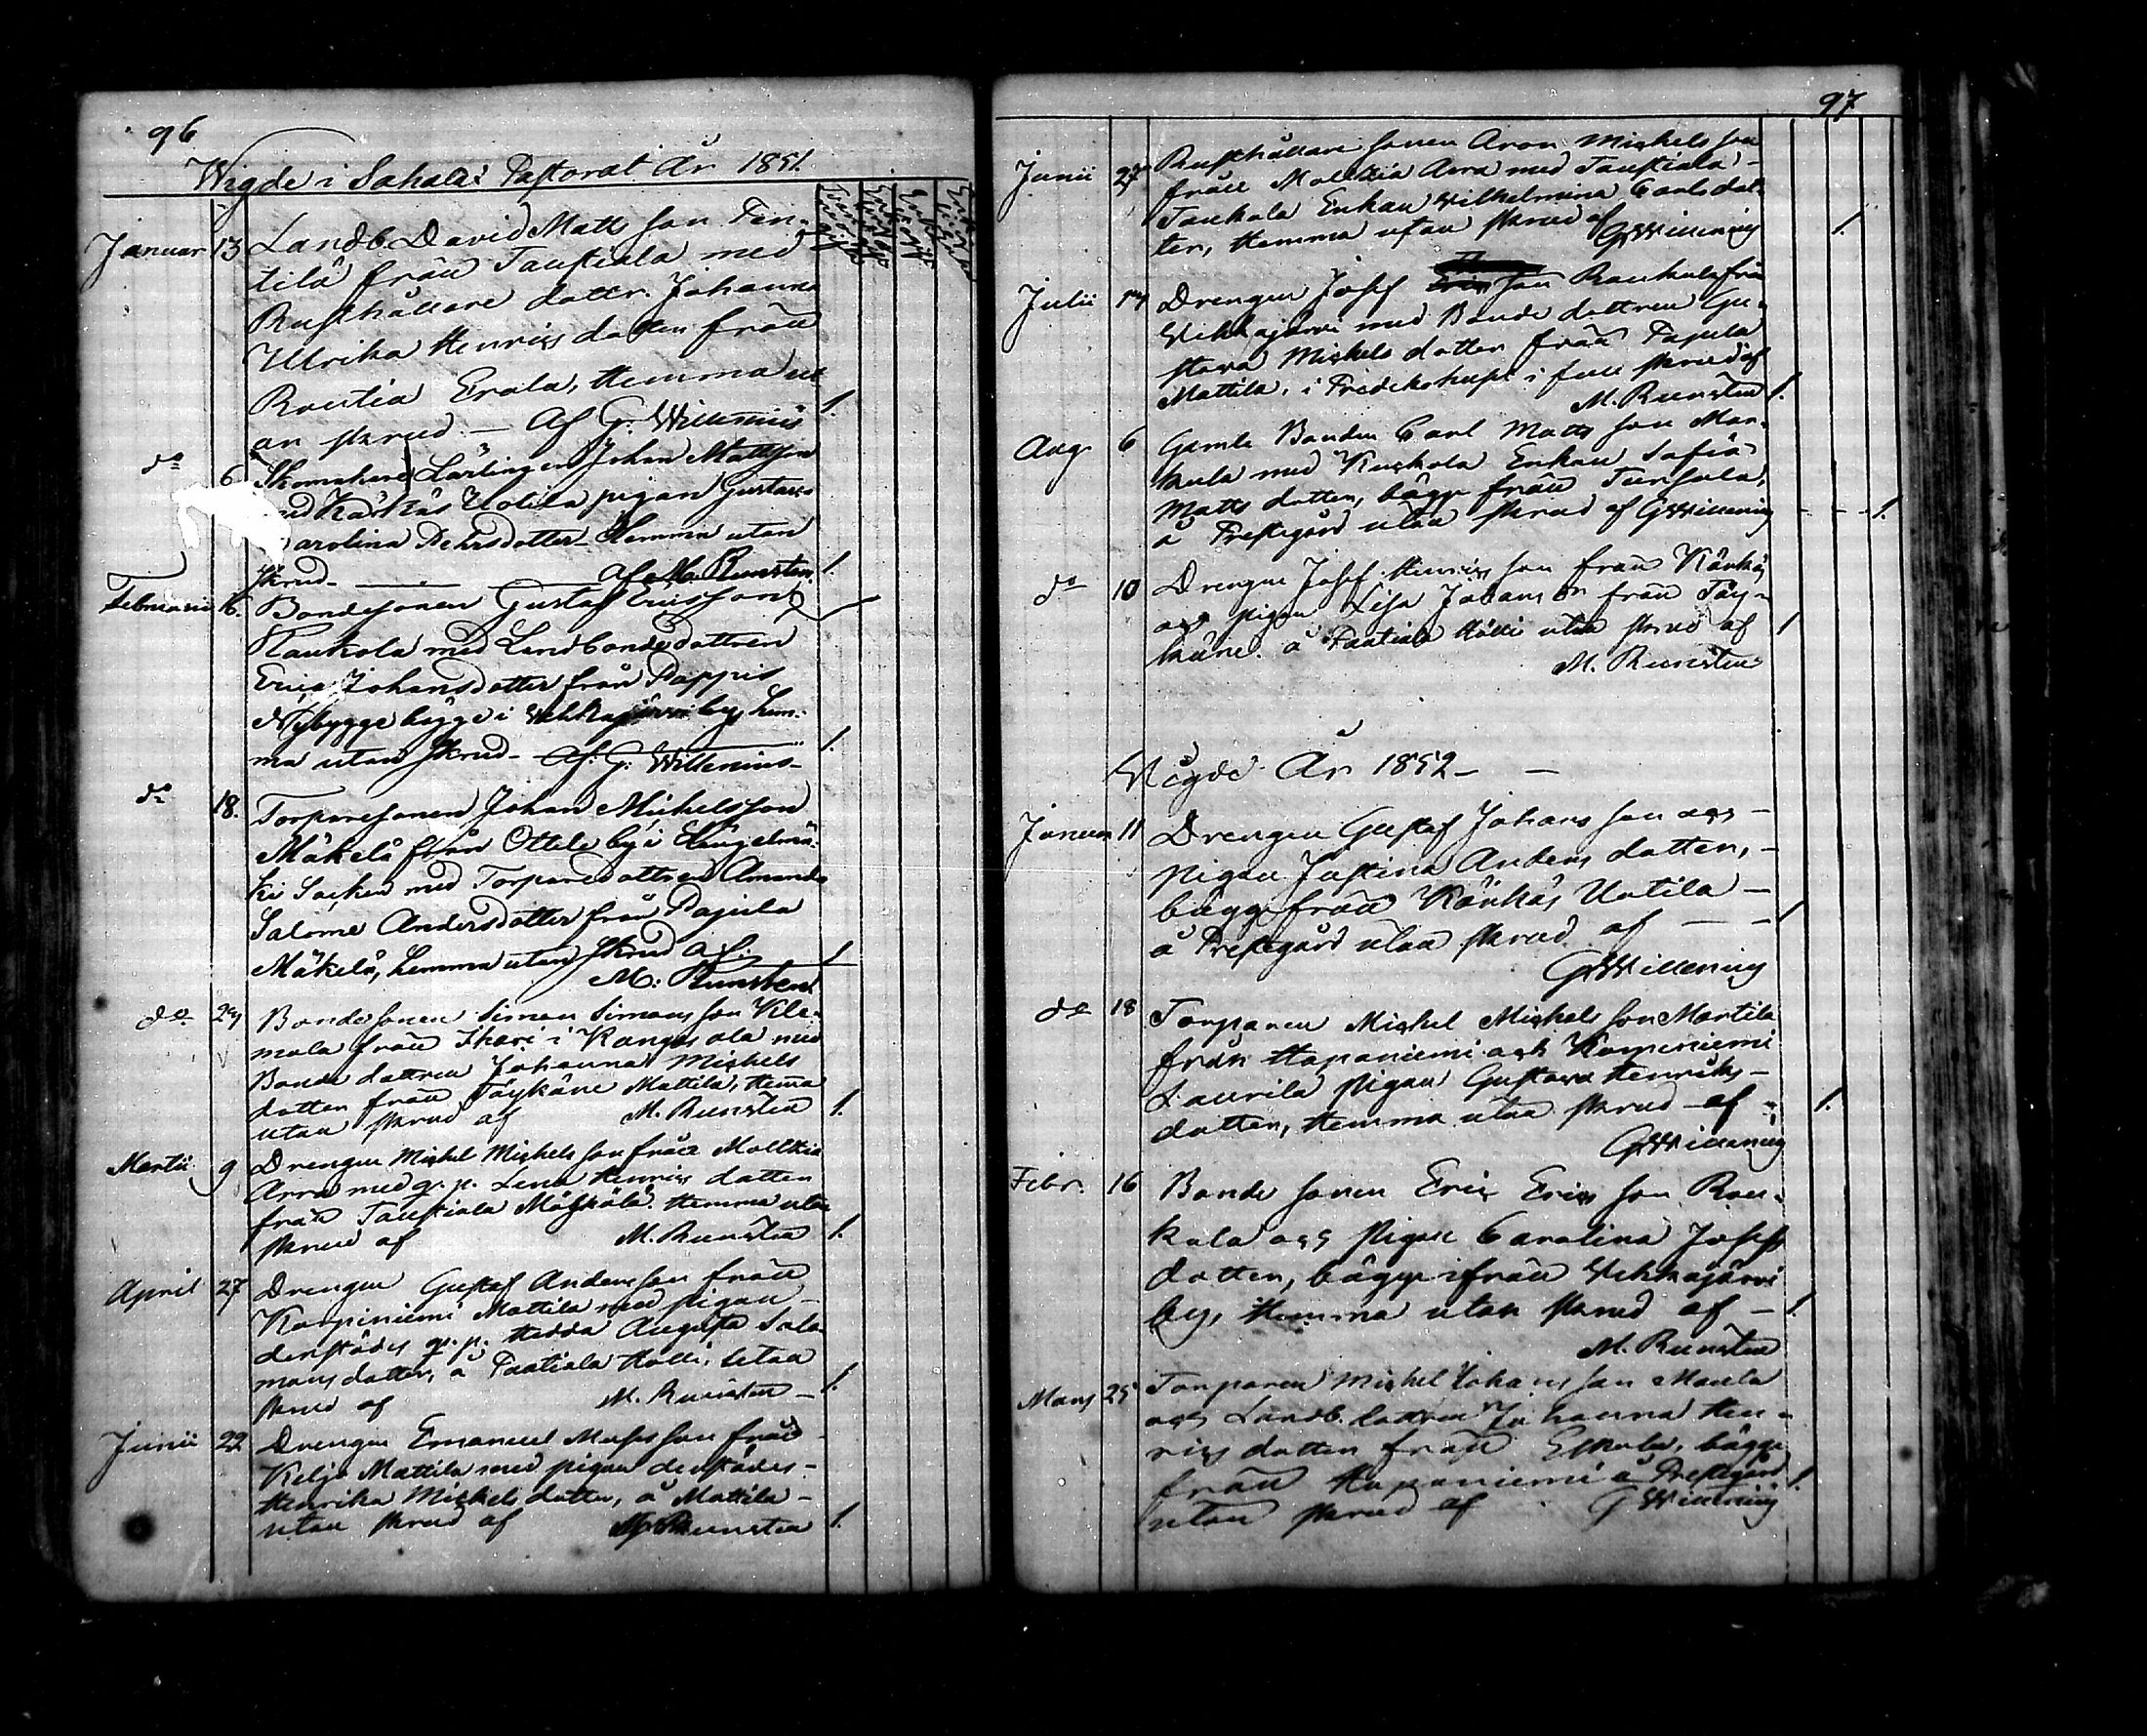 96
Wigde i Sahalax Pastorat År 1851.
Januar 13 Landb. David Matts son Ten-
tilä från Taustiala med
Rusthållare dottr. Johanna
Ulrika Henrics dotter från
Roultia Erola, Hemma ut
an skrud. — Af G. Willenius 1.
do 6 Skomakare Lärlingen Johan Mattsson
med Kärkäs Uotila pigan Gustava
Carolina Pehrsdotter Hemma utan
skrud — af M. Runsten. 1.
Februarii 16. Bondesonen Gustaf Ericsson
Raukola med Landbondedottren
Erica Johansdotter från Pappis
Nybygge bägge i Vehkajärvi by, hem-
ma utan skrud — af G. Willenius — 1.
do 18. Torparesonen Johan Michelsson
Mäkelä från Ottila by i Längelmä-
ki Socken med Torparedottren Amanda
Salome Andersdotter från Pajula
Mäkelä, hemma utan skrud af. 1
M. Runsten.
do 24 Bonde sonen Simon Simons son Kile-
mola från Ihari i Kangasala med
Bonde dottren Johanna Michels
dotter från Töykäne Mattila, Hema
utan skrud af M. Runsten 1.
Martii 9 Drengen Michel Michels son från Moltkia
Arra med q. p. Lena Henrics dotter
från Taustiala Mäskälä. Hemma utan
skrud af M. Runsten 1.
April 27 Drengen Gustaf Anders son från
Korpiniemi Mattila med pigan
derstädes q. p. Hedda Augusta Salo-
mons dotter, å Paatiala Hölli, utan
skrud af M. Runsten — 1.
Junii 22 Drengen Emanuel Moses son från
Keljo Mattila med pigan derstädes —
Henrika Michels dotter, å Mattila —
utan skrud af M. Runsten 1.
97
Junii 27 Rusthållare sonen Aron Michels son
från Moltkia Arra med Taustiala —
Taukala Enkan Wilhelmina Carls dot-
ter, Hemma utan skrud af GWillenius 1.
Julii 14 Drengen Josef son Raukola från
Vehkajärvi med Bonde dottren Gu-
stava Michels dotter från Pajula
Mattila, i Fredikshus i full skrud af
M. Runsten 1.
Aug. 6 Gamle Bonden Carl Matts son Mar-
kula med Kuckola Enkan Sofia
Matts dotter, bägge från Tursola,
å Prestegård utan skrud af GWillenius 1.
do 10 Drengen Josef Henrics son från Kärkäs
och pigan Lisa Johans dr från Töy-
käne. å Paatiala Hölli utan skrud af 1
M. Runsten
Wigde År 1852 — —
Januar 11 Drengen Gustaf Johans son och —
pigan Justina Anders dotter, —
bägge från Kärkäs Uotila —
å Prestegård utan skrud af — — 1
GWillenius
do 18 Torparen Michel Michels son Martila
från Haponiemi och Korpiniemi
Laurila pigan Gustava Henriks —
dotter, Hemma utan skrud af — 1.
GWillenius
Febr. 16 Bonde sonen Eric Erics son Rau-
kola och Pigan Carolina Josefs
dotter, bägge ifrån Vehkajärvi
by, Hemma utan skrud af — 1.
M. Runsten
Mars 25 Torparen Michel Johans son Maula
och Landb. dottren Johanna Hen-
rics dotter från Eskola, bägge
från Haponiemi å Prestegård 1.
utan skrud af GWillenius